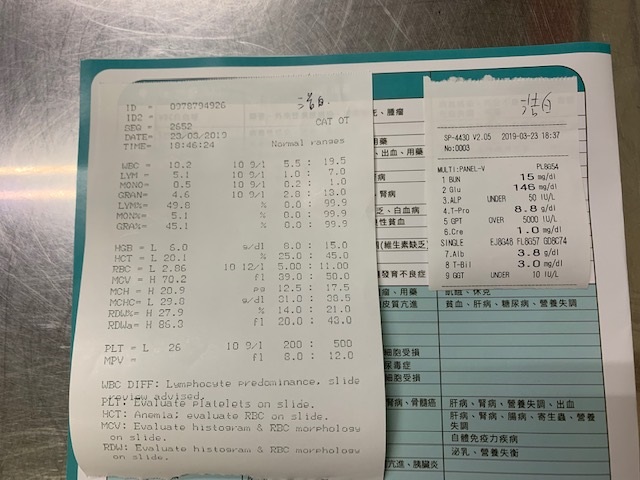 ID = 0978794926
ID2 =
SEQ = 2652
DATE= 23/03/2019
TIME= 18:46:24
CAT OT
Normal ranges
WBC = 10.2 10 9/l 5.5 : 19.5
LYM = 5.1 10 9/l 1.0 : 7.0
MONO= 0.5 10 9/l 0.2 : 1.0
GRAN= 4.6 10 9/l 2.8 : 13.0
LYM%= 49.8 % 0.0 : 99.9
MON%= 5.1 % 0.0 : 99.9
GRA%= 45.1 % 0.0 : 99.9
HGB = L 6.0 g/dl 8.0 : 15.0
HCT = L 20.1 % 25.0 : 45.0
RBC = L 2.86 10 12/l 5.00 : 11.00
MCV = H 70.2 fl 39.0 : 50.0
MCH = H 20.9 pg 12.5 : 17.5
MCHC= L 29.8 g/dl 31.0 : 38.5
RDW%= H 27.9 % 14.0 : 21.0
RDWa= H 86.3 fl 20.0 : 43.0
PLT = L 26 10 9/l 200 : 500
MPV = fl 8.0 : 12.0
WBC DIFF: Lymphocyte predominance, slide
review advised.
PLT: Evaluate platelets on slide.
HCT: Anemia: evaluate RBC on slide.
MCV: Evaluate histogram & RBC morphology
on slide.
RDW: Evaluate histogram & RBC morphology
on slide.
SP-4430 V2.05 2019-03-23 18:37
No:0003
MULTI:PANEL-V PL8G54
1 BUN 15 mg/dl
2 Glu 146 mg/dl
3.ALP UNDER 50 IU/L
4.T-Pro 8.8 g/dl
5 GPT OVER 5000 IU/L
6.Cre 1.0 mg/dl
SINGLE EJ8G48 FL8G57 GD8C74
7.Alb 3.8 g/dl
8 T-Bil 3.0 mg/dl
9 GGT UNDER 10 IU/L
、腫瘤
用藥
、出血、用藥
病
腎病
乏、白血病
性貧血
(維生素缺乏)
發育不良症
瘤、用藥
皮質亢進
貧血、肝病、糖尿病、營養失調
細胞受損
尿毒症
細胞受損
腎病、骨髓癌
肝病、腎病、營養失調、出血
肝病、腎病、腸病、寄生蟲、營養
失調
自體免疫力疾病
泌乳、營養失衡
亢進、胰臟炎